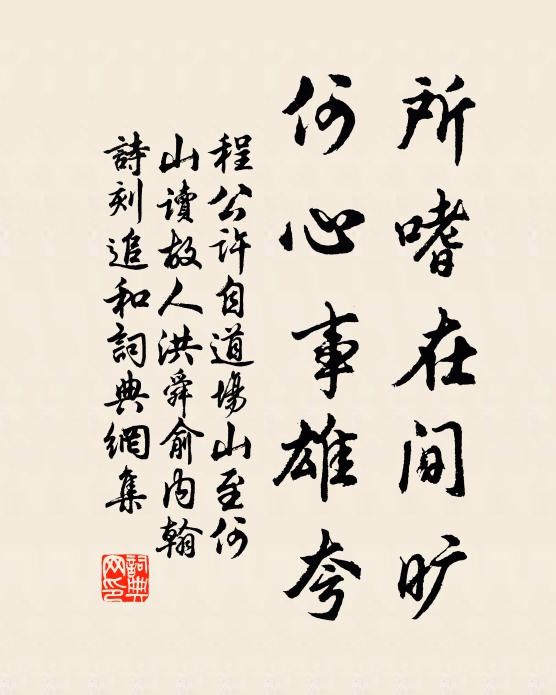 所嗜在閒旷
何心事雄夸
程公许自道場山至何
山讀故人洪舜俞内翰
詩刻追和詞典網集
詞典网印